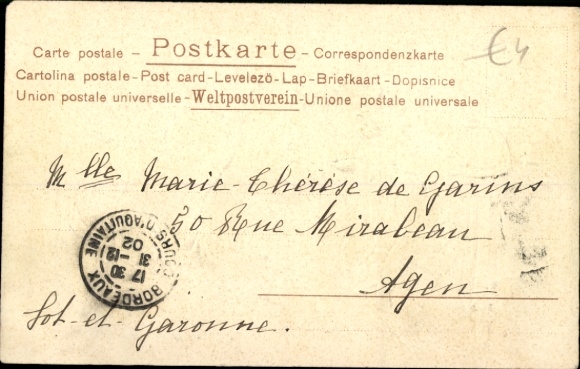 €4
Carte postale – Postkarte – Correspondenzkarte
Cartolina postale-Post card-Levelezö-Lap-Briefkaart-Dopisnice
Union postale universelle-Weltpostverein-Unione postale universale
Mlle Marie-Thérèse de Garins
50 Rue Mirabeau
Agen
Lot-et-Garonne.
BORDEAUX
17 30
31 -12
02
COURS D'AQUITAINE